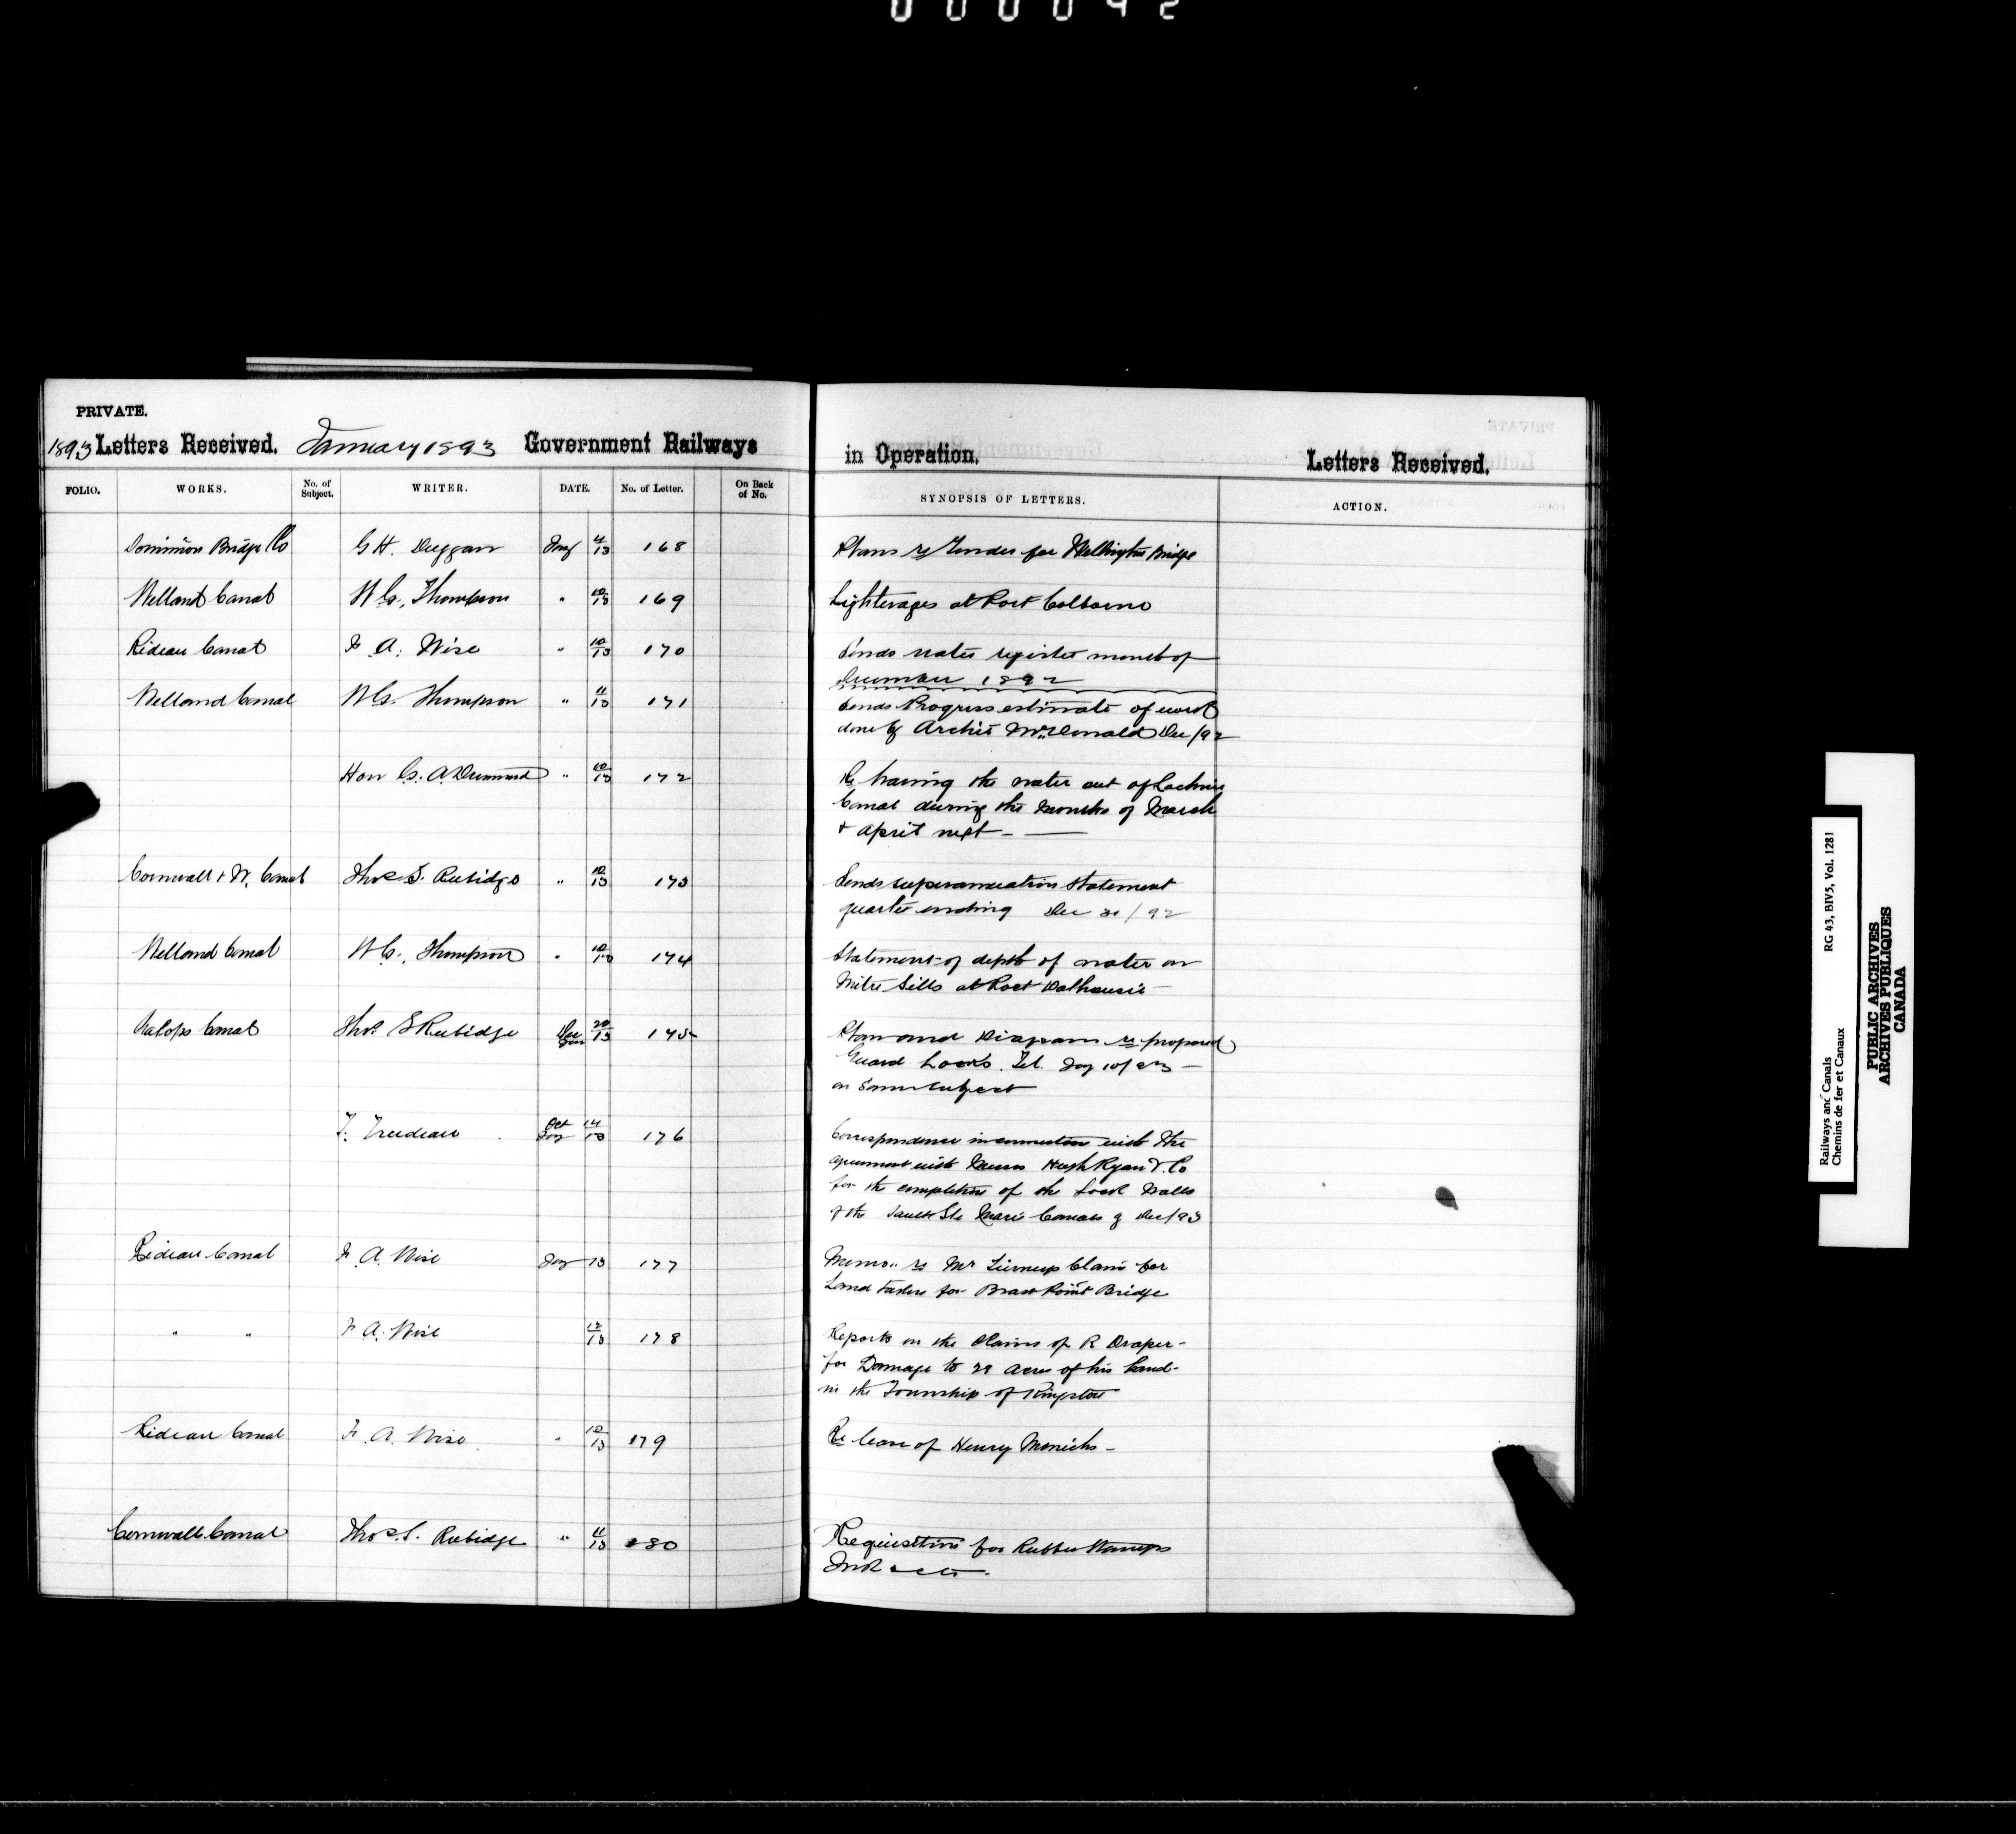 000042
PRIVATE.
1893 Letters Received. January 1893 Government Railways in Operation. Letters Received.
FOLIO. WORKS. No. of Subject. WRITER. DATE. No. of Letter. On Back of No. SYNOPSIS OF LETTERS. ACTION.
Dominion Bridge Co G H. Duggan Jany 4/13 168 Plans re Tender for Wellington Bridge
Welland Canal W G. Thompson " 10/13 169 Lighterages at Port Colborne
Rideau Canal F. A. Wise " 10/13 170 Sends water register month of
December 1892
Welland Canal W G. Thompson " 11/13 171 Sends Progress estimate of work
done by Archie McDonald Dec/92
Hon G. A. Drummond " 10/13 172 Re having the water out of Lachine
Canal during the months of March
& April next
Cornwall & W. Canal Thos S. Rubidge " 10/13 173 Sends superannuation statement
quarter ending Dec 31/92
Welland Canal W G. Thompson " 10/13 174 Statement of depth of water on
Mitre Sills at Port Dalhousie
Galops Canal Thos S Rubidge Dec Jan 20/13 175 Plan and Diagram re proposed
Guard Locks. Tel. Jany 10/93
on same subject
T. Trudeau Oct Jany 14/13 176 Correspondence in connection with the
agreement with Messrs Hugh Ryan & Co
for the completion of the Lock Walls
of the Sault Ste Marie Canal g Dec/93
Rideau Canal F. A. Wise Jany 13 177 Memo. re Mr Tierneys Claim for
Land taken for Brass Point Bridge
" " F. A. Wise 12/13 178 Reports on the Claims of R Draper
for Damage to 29 Acres of his Land
in the Township of Kingston
Rideau Canal F. A. Wise " 10/13 179 Re lease of Henry
Cornwall Canal Thos. S. Rubidge " 11/13 180 Requisition for Rubber Stamps
Ink &c
Railways and Canals
Chemins de fer et Canaux
RG 43, BIV5, Vol. 1281
PUBLIC ARCHIVES
ARCHIVES PUBLIQUES
CANADA